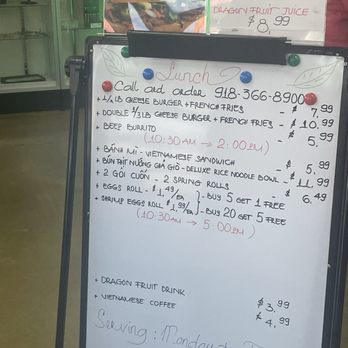 DRAGON FRUIT JUICE
$8.99
Lunch
Call and order 918-366-8900
+ 1/3 LB CHEESE BURGER + FRENCH FRIES - $7.99
+ DOUBLE 1/3 LB CHEESE BURGER + FRENCH FRIES - $10.99
+ BEEF BURRITO - $5.99
(10:30AM → 2:00PM)
+ BÁNH MÌ - VIETNAMESE SANDWICH - $5.99
+ BÚN THỊT NƯỚNG GIẢ GIÒ - DELUXE RICE NOODLE BOWL - $11.99
+ 2 GỎI CUỐN - 2 SPRING ROLLS - $6.49
+ EGGS ROLL - $1,49/EA } - BUY 5 GET 1 FREE
+ SHRIMP EGGS ROLL $1,99/EA } - BUY 20 GET 5 FREE
(10:30AM → 5:00PM)
+ DRAGON FRUIT DRINK $3.99
+ VIETNAMESE COFFEE $4.99
Serving: Monday